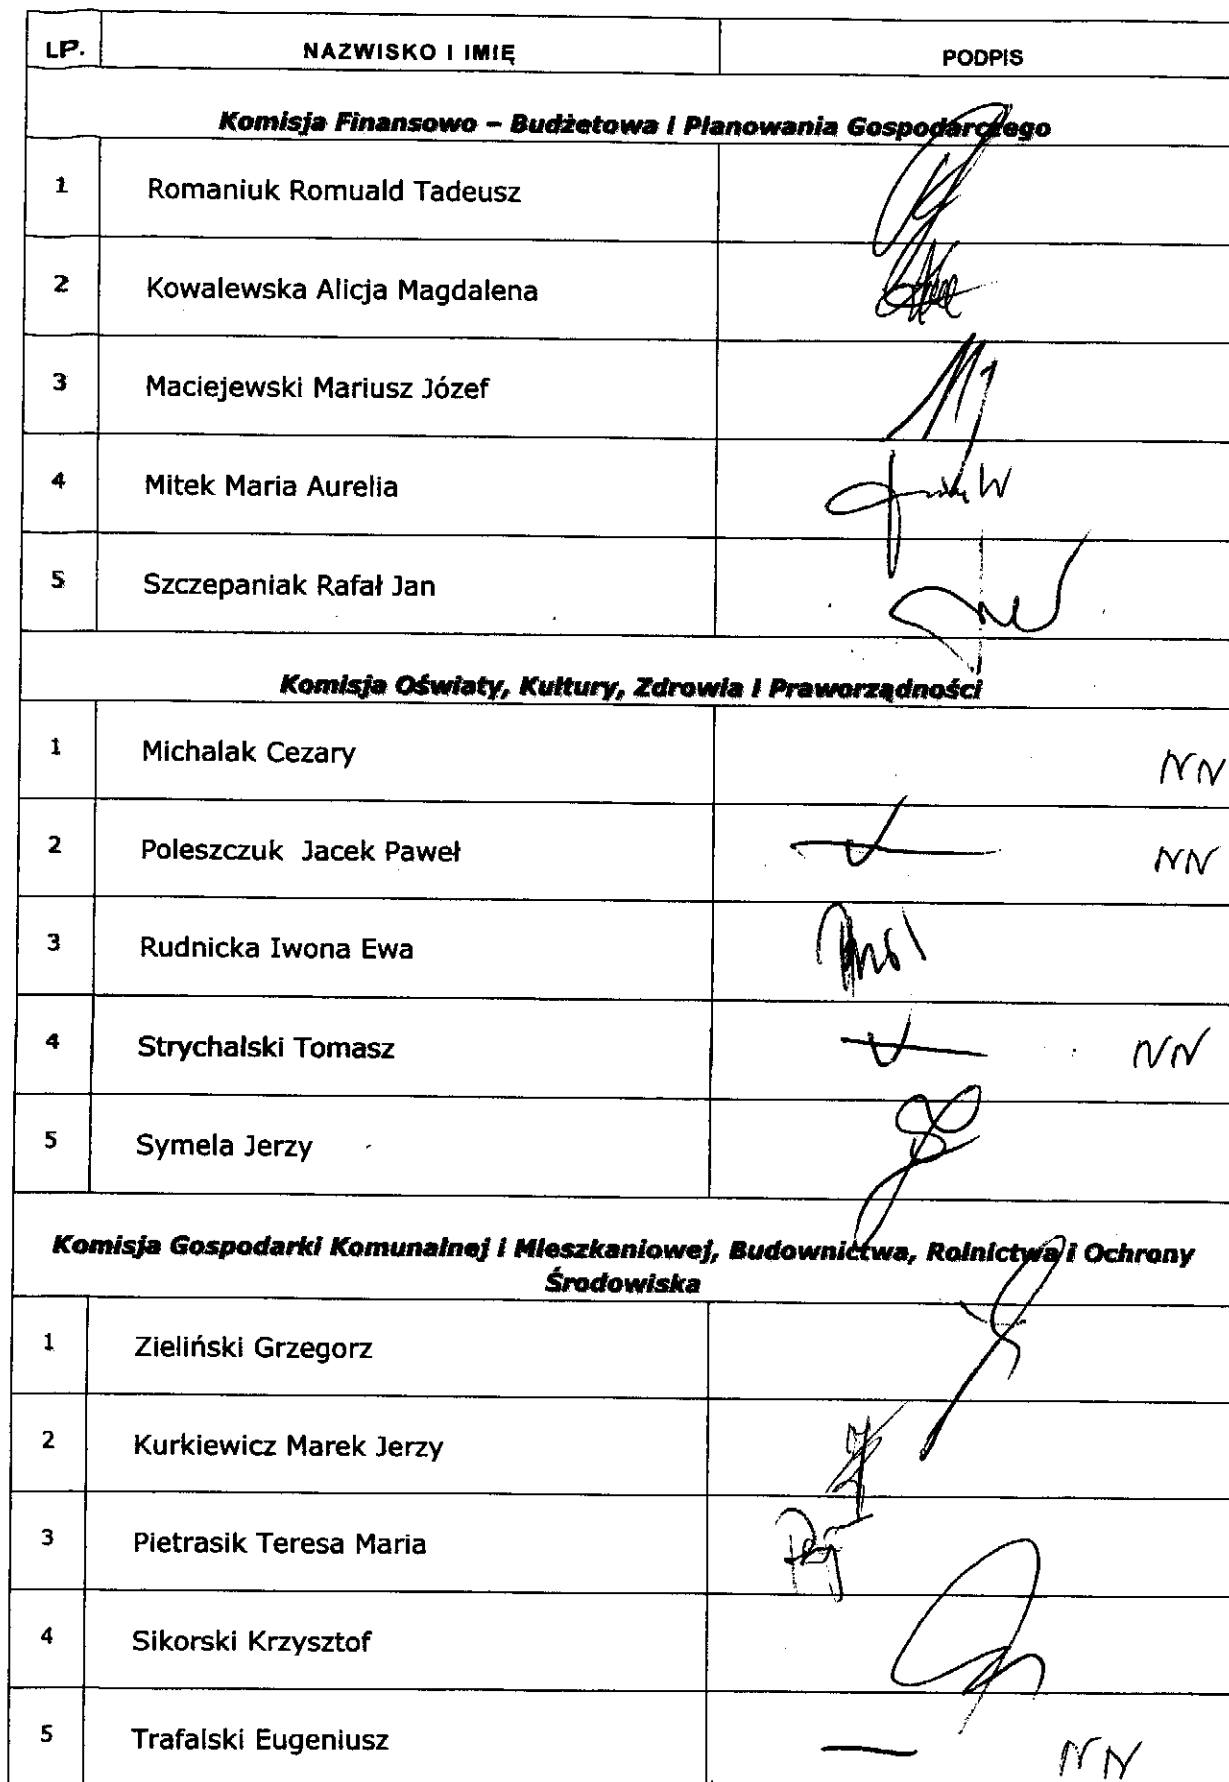 LP. NAZWISKO I IMIĘ PODPIS
Komisja Finansowo – Budżetowa i Planowania Gospodarczego
1 Romaniuk Romuald Tadeusz
2 Kowalewska Alicja Magdalena
3 Maciejewski Mariusz Józef
4 Mitek Maria Aurelia
5 Szczepaniak Rafał Jan
Komisja Oświaty, Kultury, Zdrowia i Praworządności
1 Michalak Cezary NN
2 Poleszczuk Jacek Paweł NN
3 Rudnicka Iwona Ewa
4 Strychalski Tomasz NN
5 Symela Jerzy
Komisja Gospodarki Komunalnej i Mieszkaniowej, Budownictwa, Rolnictwa i Ochrony
Środowiska
1 Zieliński Grzegorz
2 Kurkiewicz Marek Jerzy
3 Pietrasik Teresa Maria
4 Sikorski Krzysztof
5 Trafalski Eugeniusz — NN